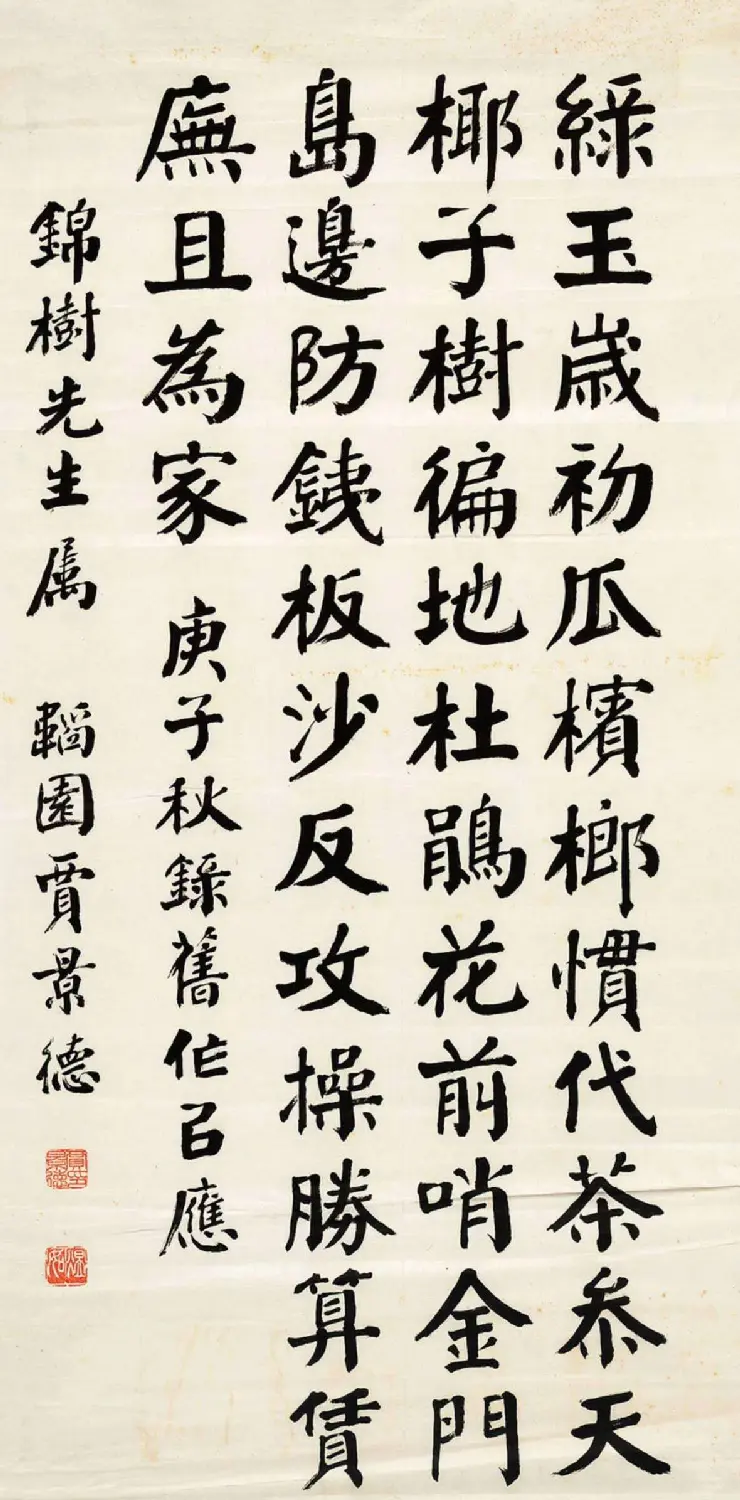 綠玉歲初瓜檳榔慣代茶叅天
椰子樹徧地杜鵑花前哨金門
島邊防銕板沙反攻操勝算賃
廡且為家 庚子秋錄舊作㠯應
錦樹先生属 韜園賈景德
賈景德